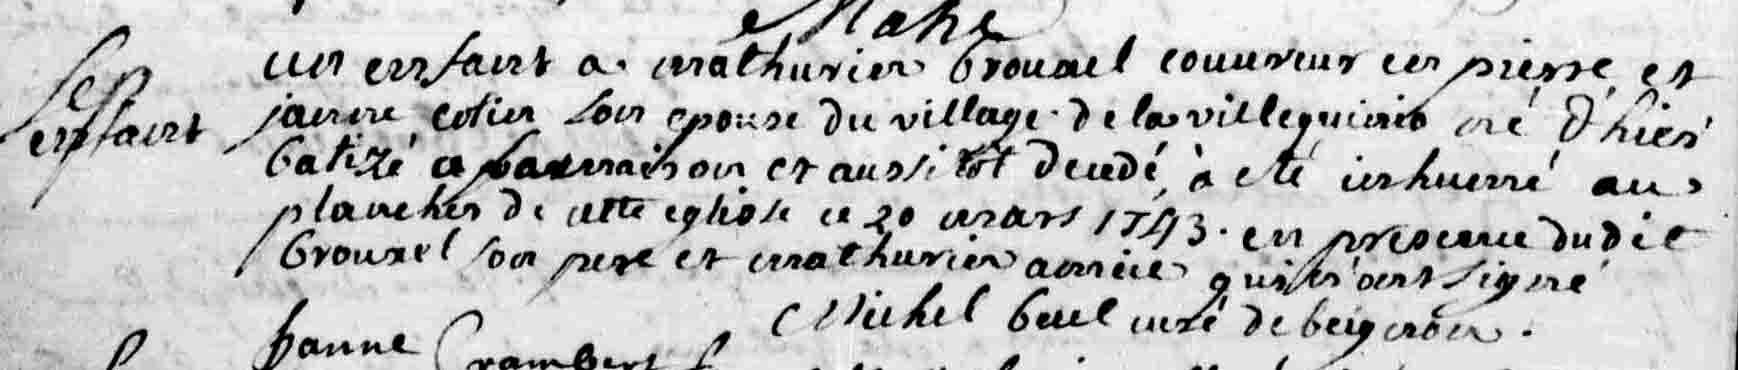 Mahé
un enfant a mathurin brouxel couvreur en pierre et
Sep
enfant
janne cotin son epouse du village de la villeguinio né d'hier
batizé a la maison et aussi tot decedé, à eté inhumé au
placher de cette eglise ce 20 mars 1743. en presence dudit
brouxel son pere et mathurin qui n'ont signé
Michel curé de beignon.
Janne Crambert